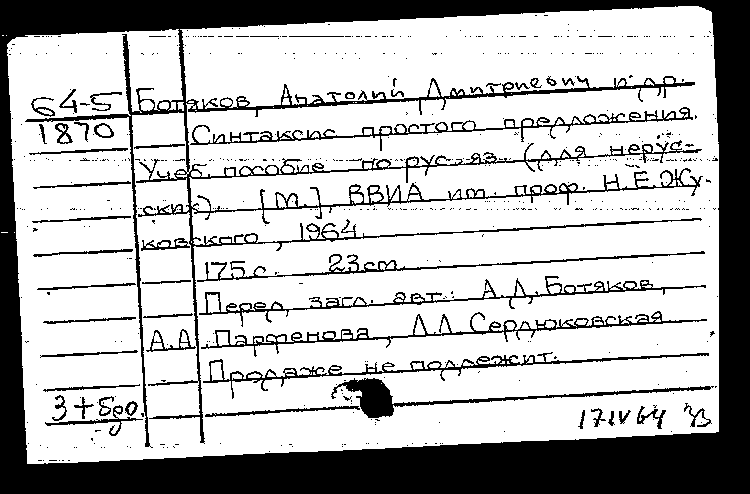 64-5 Ботяков, Анатолий Дмитриевич и др.
1870 Синтаксис простого предложения.
Учеб. пособие по рус. яз. (для нерус-
ских). [М.], ВВИА им. проф. Н.Е. Жу-
ковского, 1964.
175 с. 23 см.
Перед загл. авт.: А.Д. Ботяков,
А.А. Парфенова, Л.Л. Сердюковская.
Продаже не подлежит.
17 IV 64